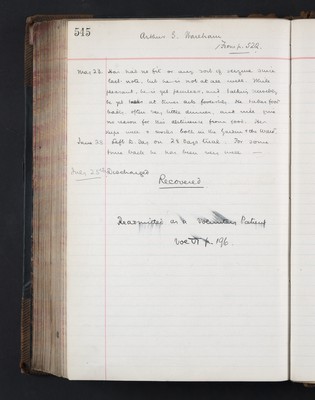 545
Arthur S. Wareham
from p. 522.
Mar 28. Has had no fit or any sort of seizure since
last note. but he is not at all well. While
pleasant, he is yet peculiar, and lacking energy,
he yet at times acts foolishly. He takes food
badly often very little dinner, and will give
no reason for this abstinence from food. He
keeps well & works both in the Garden & the Ward.
June 28 Left to day on 28 days trial. For some
time back he has been very well —
July 25th Discharged
Recovered
Readmitted as a Voluntary Patient
Vol p. 196.